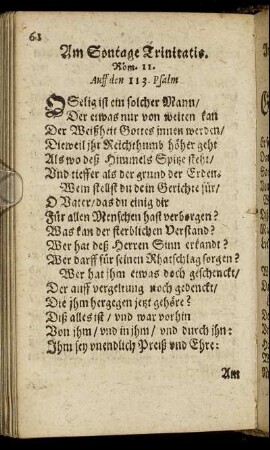 61
Am Sontage Trinitatis.
Röm. 11.
Auff den 113. Psalm
O Selig ist ein solcher Mann/
Der etwas nur von weiten kan
Der Weißheit Gottes innen werden/
Dieweil jhr Reichthumb höher geht
Als wo deß Himmels Spitze steht/
Und tieffer als der grund der Erden.
Wem stellst du dein Gerichte für/
O Vater/ das du einig dir
Für allen Menschen hast verborgen?
Was kan der sterblichen Verstand?
Wer hat deß Herren Sinn erkandt?
Wer darff für seinen Rhatschlag sorgen?
Wer hat jhm etwas doch geschenckt/
Der auff vergeltung noch gedenckt/
Die jhm hergegen jetzt gehöre?
Diß alles ist/ und war vorhin
Von jhm/ und in jhm/ und durch jhn:
Ihm sey unendlich Preiß und Ehre:
Am